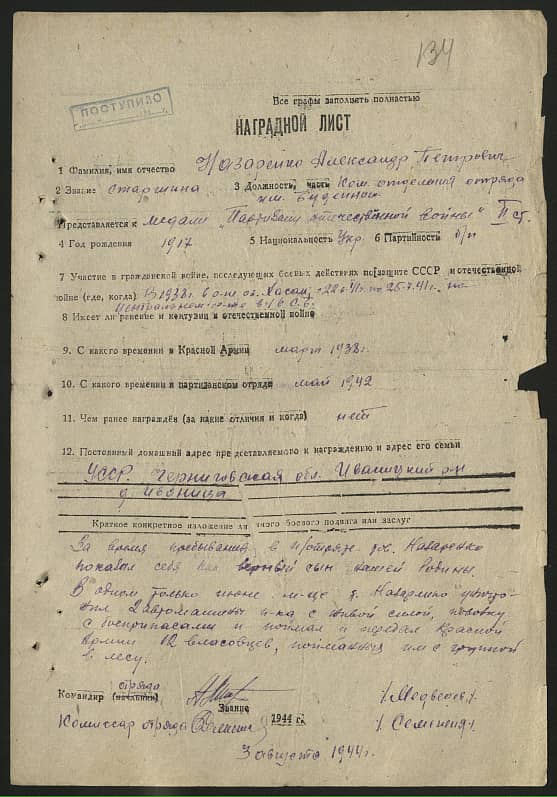 134
ПОСТУПИЛО
Все графы заполнять полностью
НАГРАДНОЙ ЛИСТ
1 Фамилия, имя отчество Назаренко Александр Петрович
2 Звание старшина 3 Должность, часть Ком. отделения отряда
им. Буденного
Представляется к медали "Партизану отечественной войны" II ст.
4 Год рождения 1917 5 Национальность Укр. 6 Партийность б/п
7 Участие в гражданской войне, последующих боевых действиях по защите СССР и отечественной
войне (где, когда) В 1938г. в р-не оз. Хасан, с 22.6.41г. по 25.7.41г. на
Центральном
8 Имеет ли ранение и контузии в отечественной войне
9. С какого времени в Красной Армии март 1938г.
10. С какого времени в партизанском отряде май 1942
11. Чем ранее награждён (за какие отличия и когда) нет
12. Постоянный домашний адрес представляемого к награждению и адрес его семьи
УССР. Черниговская обл. Иваницкий р-н
д. Иваница
Краткое конкретное изложение личного боевого подвига или заслуг
За время пребывания в п/отряде тов. Назаренко
показал себя как верный сын нашей Родины.
В одном только июне м-це т. Назаренко уничто-
жил 2 автомашины п-ка с живой силой, повозку
с боеприпасами и поймал и передал Красной
Армии 12 власовцев, пойманных им с группой
в лесу.
отряда
Командир (начальник) /Медведев/
Звание
Комиссар отряда 1944 г.
3 августа 1944г.